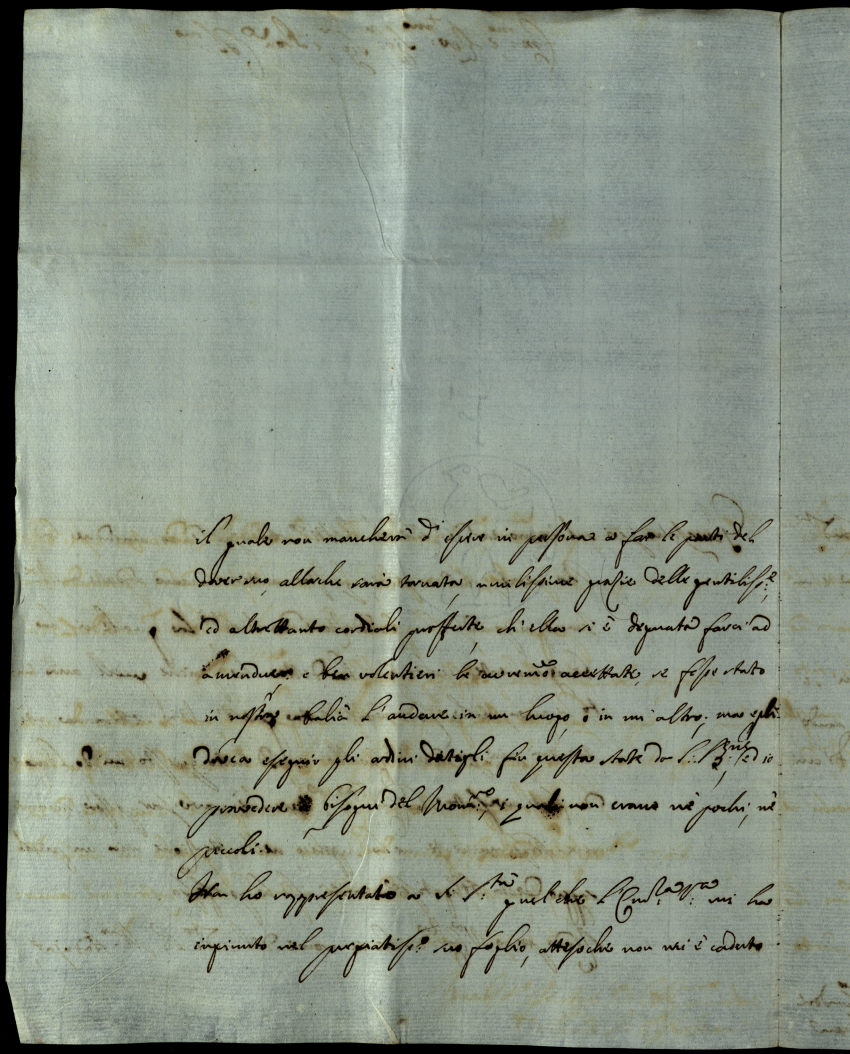 il quale non mancherà d'essere in persona a far le parti del
dover suo, allorche sarà tornata, umilissime grazie delle gentiliss.e
ed altrettanto cordiali profferte, ch'ella si è degnata farci ad
amendue, e ben volentieri le avremmo accettate, se fosse stato
in nostra balìa l'andare in un luogo, ò in un altro; ma egli
dovea eseguir gli ordini datigli fin questa state da S. ed io
provvedere a' bisogni del Mon.ro, i quali non erano nè pochi, nè
piccoli.
Non ho rappresentato a S. S.tà quel che l'Em.za V.ra mi ha
ingiunto nel pregiatiss.o suo foglio, attesoche non mi è caduto